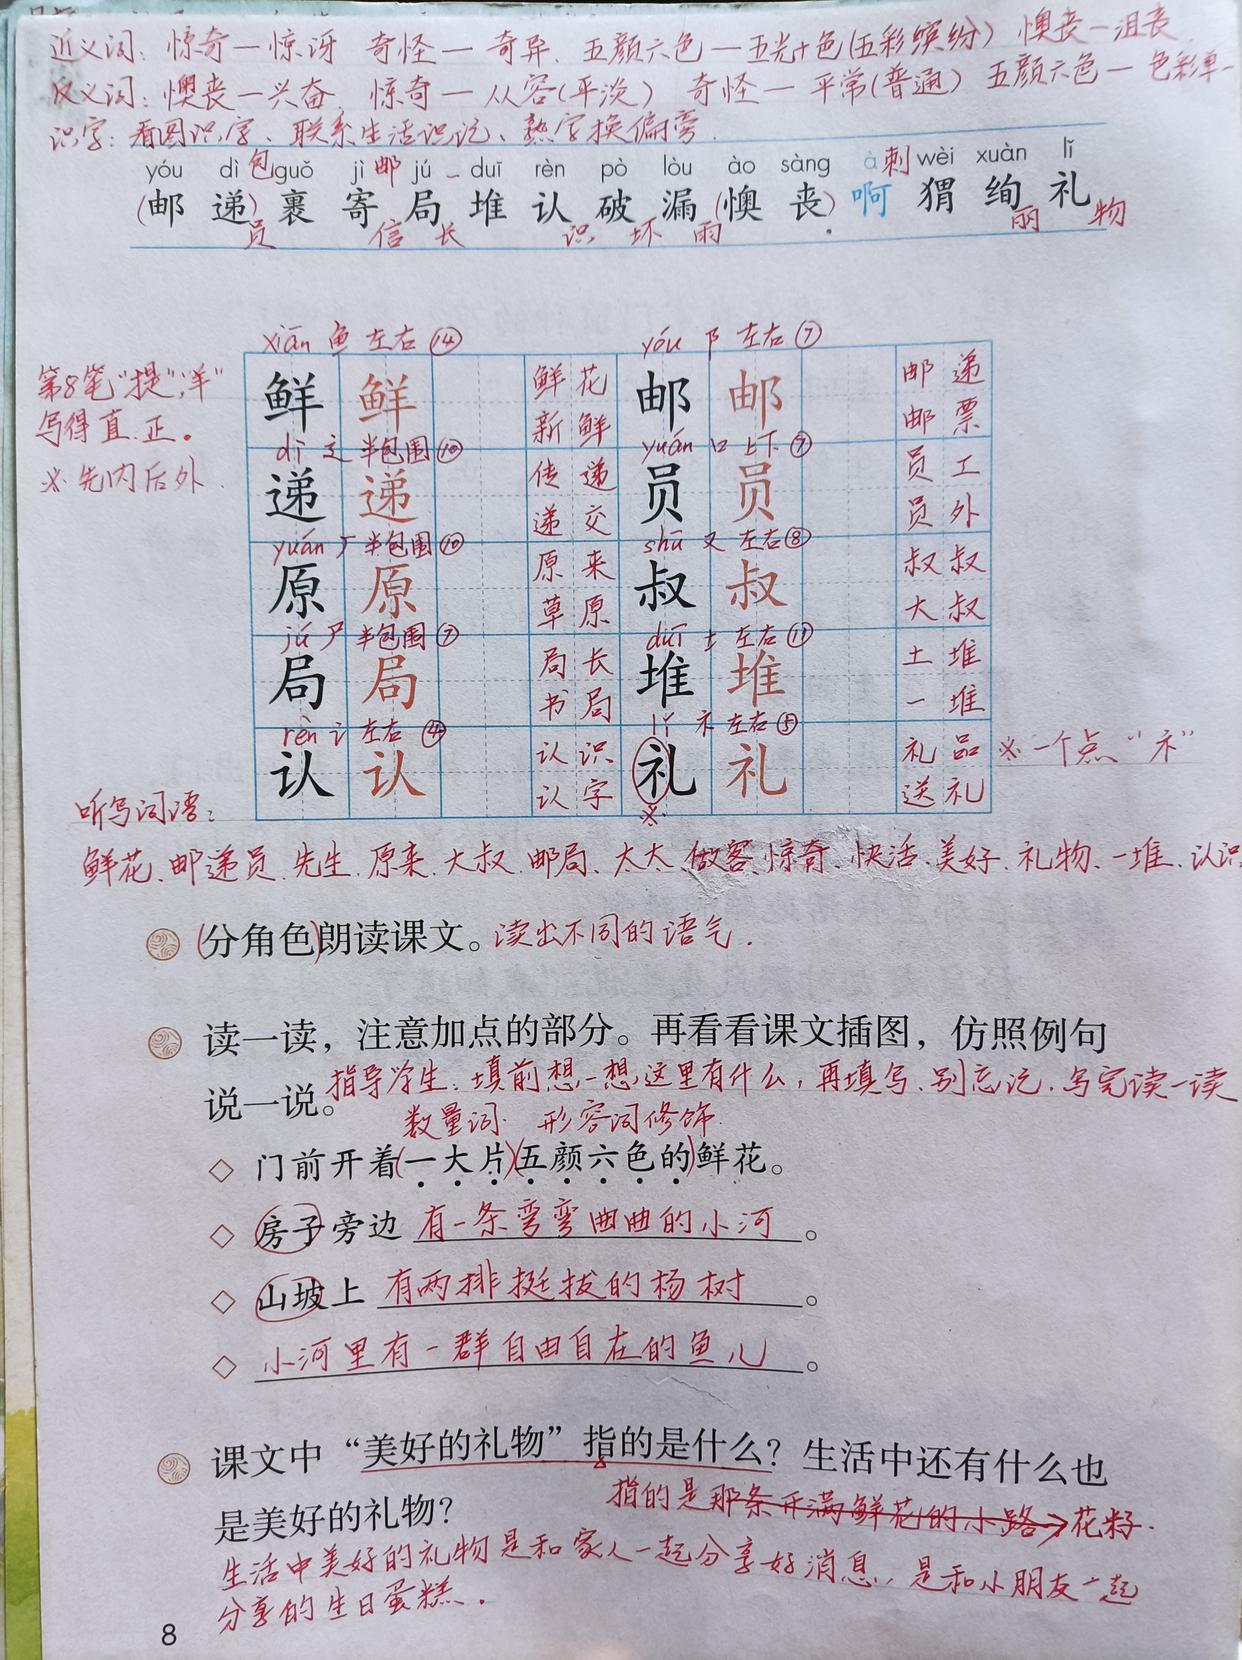 近义词：惊奇—惊讶 奇怪—奇异. 五颜六色—五光十色(五彩缤纷) 懊丧—沮丧
反义词：懊丧—兴奋 惊奇—从容(平淡) 奇怪—平常(普通) 五颜六色—色彩单一
识字：看图识字、联系生活识记、熟字换偏旁.
yóu dì 包 guǒ jì 邮 jú duī rèn pò lòu ào sàng à 刺 wèi xuàn lǐ
(邮 递) 裹 寄 局 堆 认 破 漏 (懊 丧) 啊 猬 绚 礼
员 信 长 识 坏 雨 丽 物
xiān 鱼 左右 ⑭ yóu 阝 左右 ⑦
第8笔“提”，“羊”
写得直.正。
※先内后外
鲜 鲜 鲜花 新鲜 邮 邮 邮递 邮票
dì 辶 半包围 ⑩ yuán 口 上下 ⑦
递 递 传递 递交 员 员 员工 员外
yuán 厂 半包围 ⑩ shū 又 左右 ⑧
原 原 原来 草原 叔 叔 叔叔 大叔
jú 尸 半包围 ⑦ duī 土 左右 ⑪
局 局 局长 书局 堆 堆 土堆 一堆
rèn 讠 左右 ④ lǐ 礻 左右 ⑤
认 认 认识 认字 礼 礼 礼品 送礼 ※一个点“礻”
※
听写词语：
鲜花、邮递员.先生.原来.大叔.邮局、太太.做客.惊奇、快活.美好.礼物、一堆、认识
(分角色)朗读课文。读出不同的语气.
读一读，注意加点的部分。再看看课文插图，仿照例句
说一说。指导学生：填前想一想,这里有什么，再填写.别忘记.写完读一读
数量词. 形容词修饰.
◇ 门前开着(一大片)(五颜六色的)鲜花。
◇ 房子旁边 有一条弯弯曲曲的小河 。
◇ 山坡上 有两排挺拔的杨树 。
◇ 小河里有一群自由自在的鱼儿 。
课文中“美好的礼物”指的是什么？生活中还有什么也
是美好的礼物？ 指的是那条开满鲜花的小路→花籽.
生活中美好的礼物是和家人一起分享好消息，是和小朋友一起
分享的生日蛋糕.
8